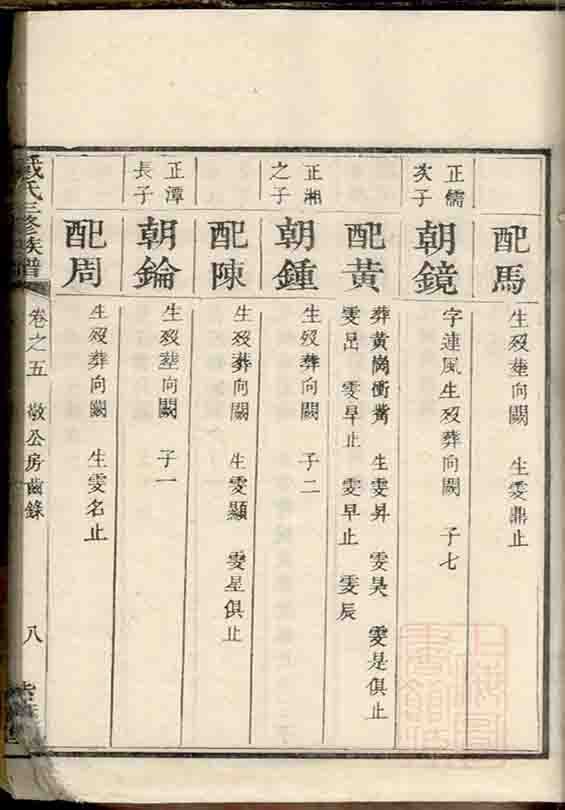 配馬
生歿塟向闕 生雯鼎止
正儒次子
朝鏡
字連風生歿葬向闕 子七
配黃
葬黃崗衝 生雯昇 雯昊 雯是俱止
雯昂 雯早止 雯早止 雯辰
正湘之子
朝鍾
生歿葬向闕 子二
配陳
生歿葬向闕 生雯顯 雯星俱止
正潭長子
朝錀
生歿塟向闕 子一
配周
生歿葬向闕 生雯名止
戴氏三修族譜
卷之五 敬公房齒錄
八